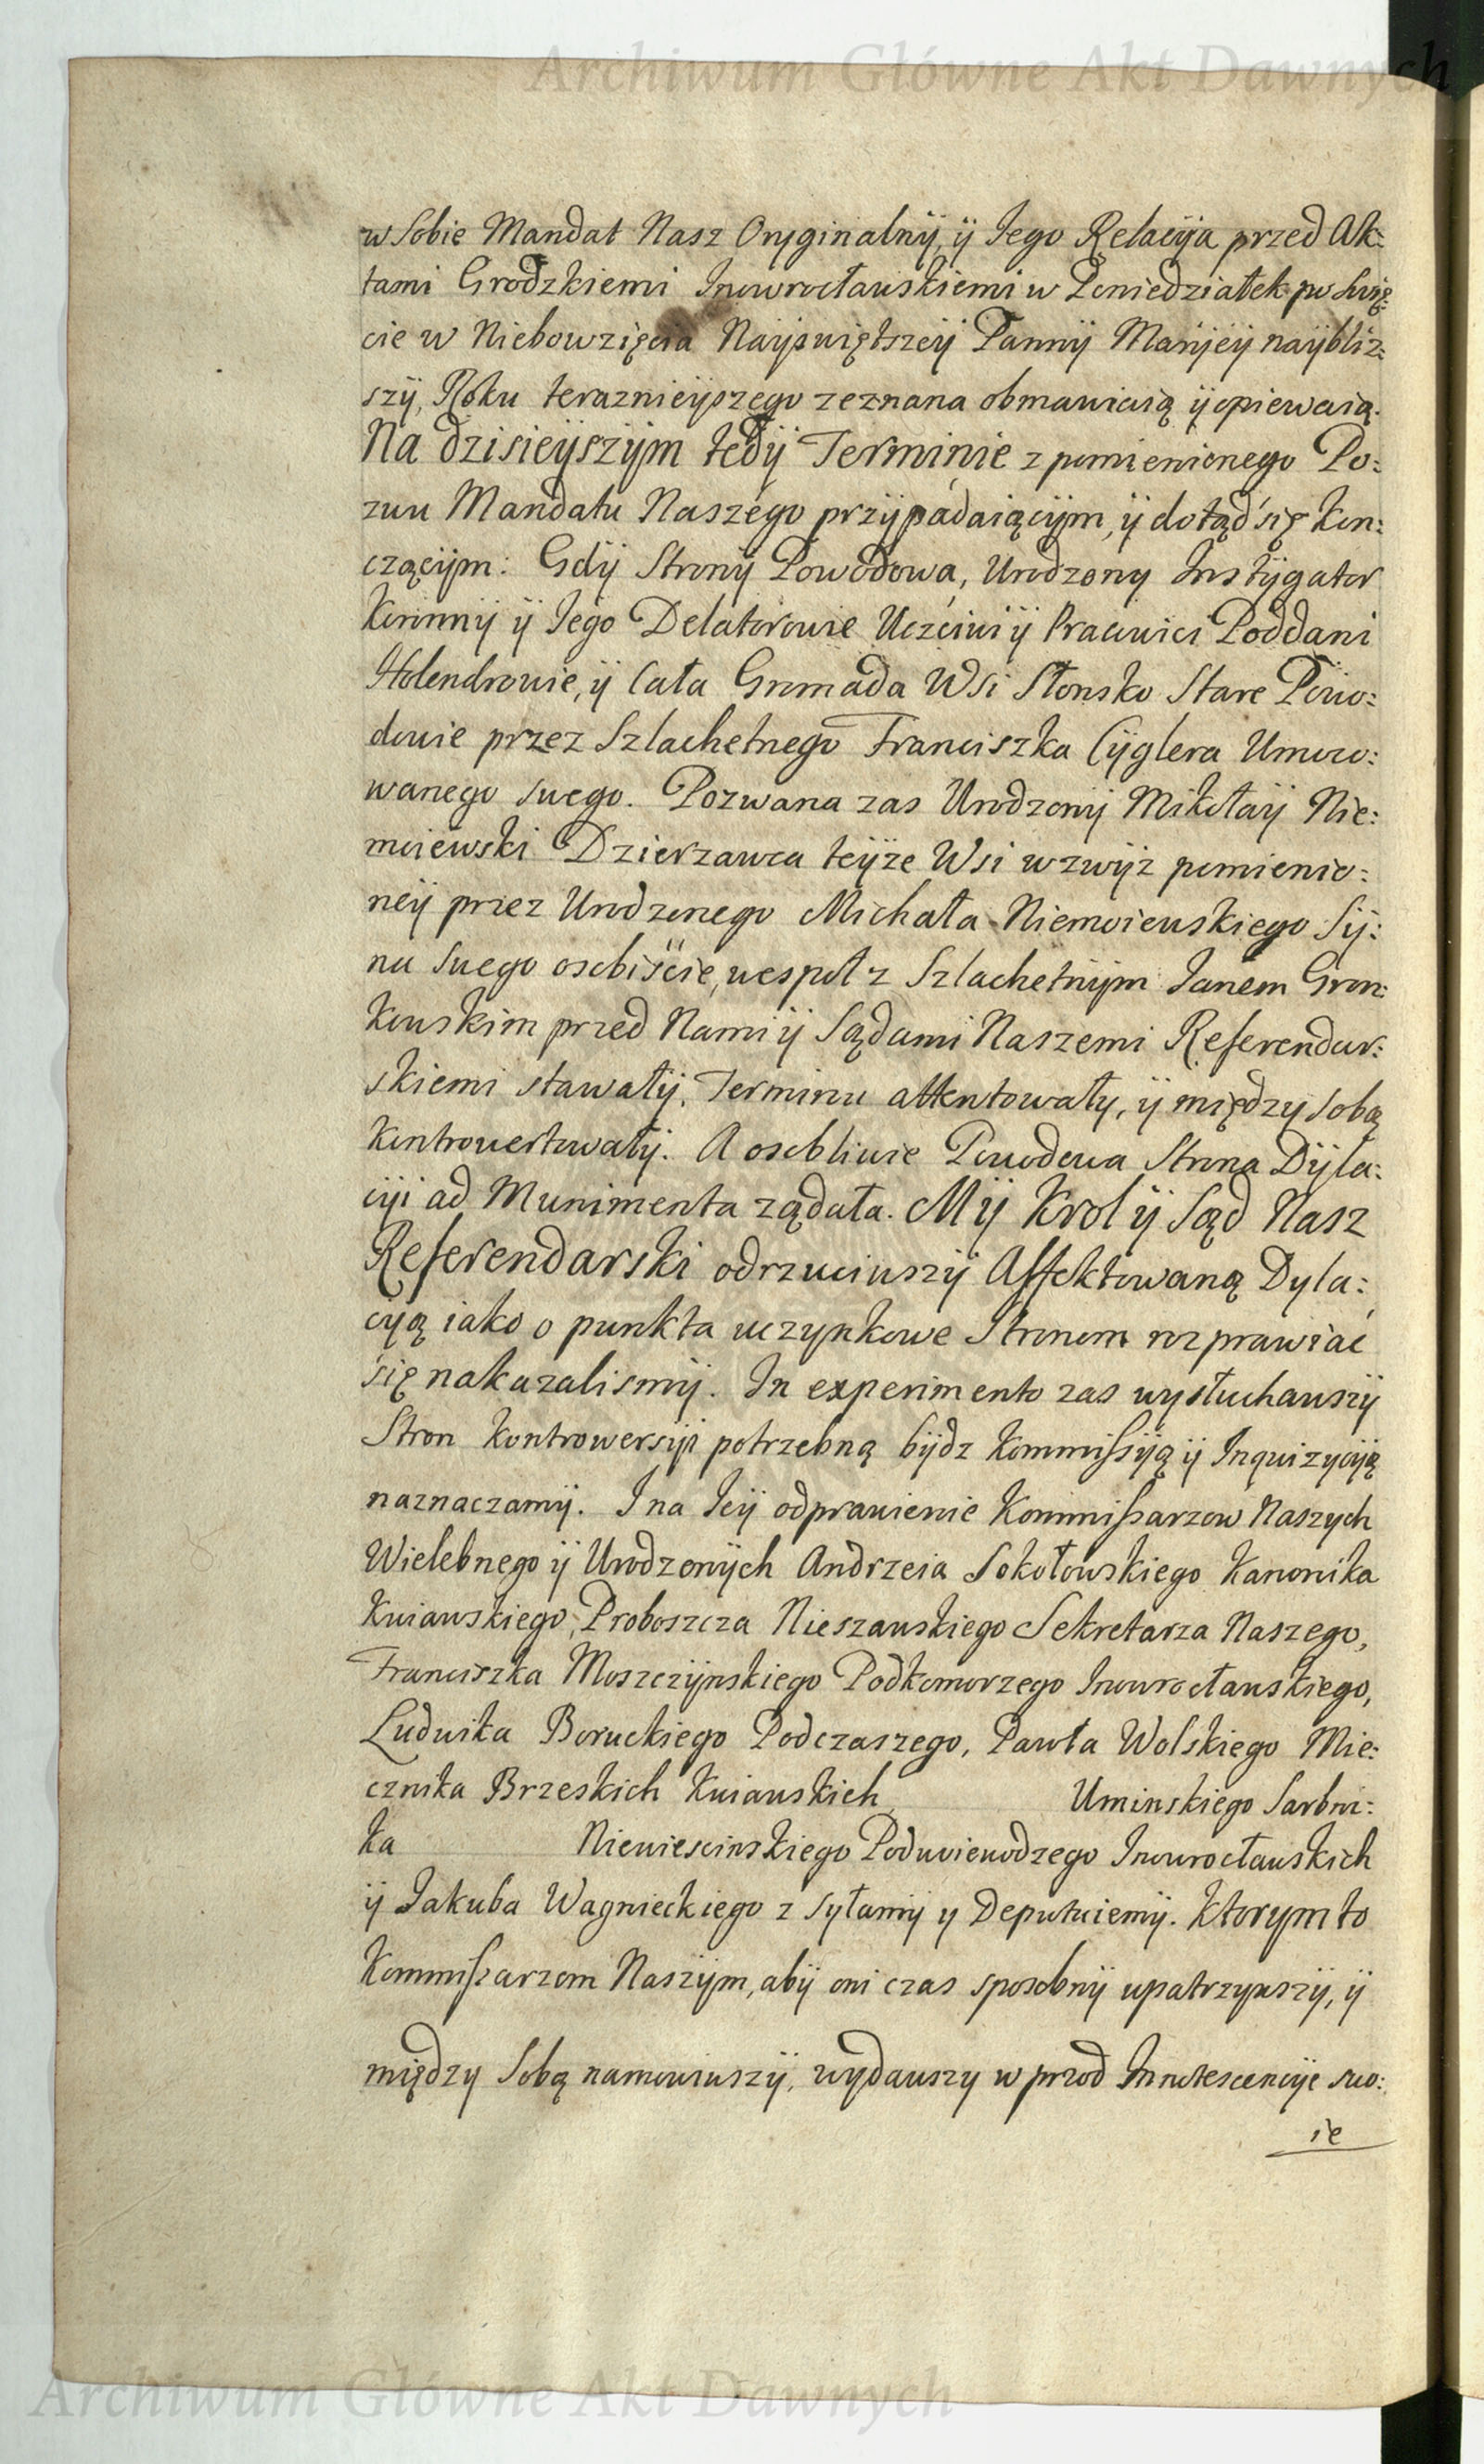 Archiwum Główne Akt Dawnych
w Sobie Mandat Nasz Oryginalnÿ, ÿ Iego Relacÿa przed Ak:
tami Grodzkiemi Inowrocławskiemi w Poniedziałek po Swię:
cie w Niebowzięcia Nayswiętszeÿ Pannÿ Marÿeÿ naÿbliz:
szÿ, Roku teraznieÿszego zeznana obmawiaią ÿ opiewaią.
Na dzisieÿszÿm tedÿ Terminie z pomienionego Po:
zwu Mandatu Naszego przÿpadaiącÿm, ÿ dotąd się kon:
czącÿm: Gdÿ Stronÿ Powodowa, Urodzony Instÿgator
Koronnÿ ÿ Iego Delatorowie Uczciwi ÿ Pracowici Poddani
Holendrowie, ÿ Cała Gromada Wsi Słonsko Stare Powo:
dowie przez Szlachetnego Franciszka Cÿglera Umoco:
wanego swego. Pozwana zas Urodzonÿ Mikołaÿ Nie:
moiewski Dzierzawca teÿze Wsi wzwÿz pomienio:
neÿ przez Urodzonego Michała Niemoiewskiego Sÿ:
na swego osobiście, wespoł z Szlachetnÿm Janem Gron:
kowskim przed Nami ÿ Sądami Naszemi Referendar:
skiemi stawałÿ, Terminu attentowały, ÿ między sobą
kontrowertowałÿ. A osobliwie Powodowa Strona Dÿla:
cÿi ad Munimenta ządała. Mÿ Krol ÿ Sąd Nasz
Referendarski odrzuciwszÿ Affektowaną Dyla:
cyą iako o punkta uczynkowe Stronom rozprawiać
się nakazalismÿ. In experimento zas wysłuchawszÿ
Stron kontrowersÿi potrzebną bÿdz Kommissÿą ÿ Inquizycÿą
naznaczamÿ. I na Ieÿ odprawienie Kommissarzow Naszych
Wielebnego ÿ Urodzonÿch Andrzeia Sokołowskiego Kanonika
Kuiawskiego, Proboszcza Nieszawskiego Sekretarza Naszego,
Franciszka Moszczÿnskiego Podkomorzego Inowrocławskiego,
Ludwika Boruckiego Podczaszego, Pawła Wolskiego Mie:
cznika Brzeskich Kuiawskich, Uminskiego Skarbni:
ka Niewiescinskiego Podwoiewodzego Inowrocławskich
ÿ Jakuba Wagnieckiego z syłamÿ y Deputuiemÿ. Ktorym to
Kommissarzom Naszÿm, abÿ oni czas sposobnÿ upatrzywszÿ, ÿ
między Sobą namowiwszÿ, wydawszy w przod Innotescencÿe swo:
ie
Archiwum Główne Akt Dawnych